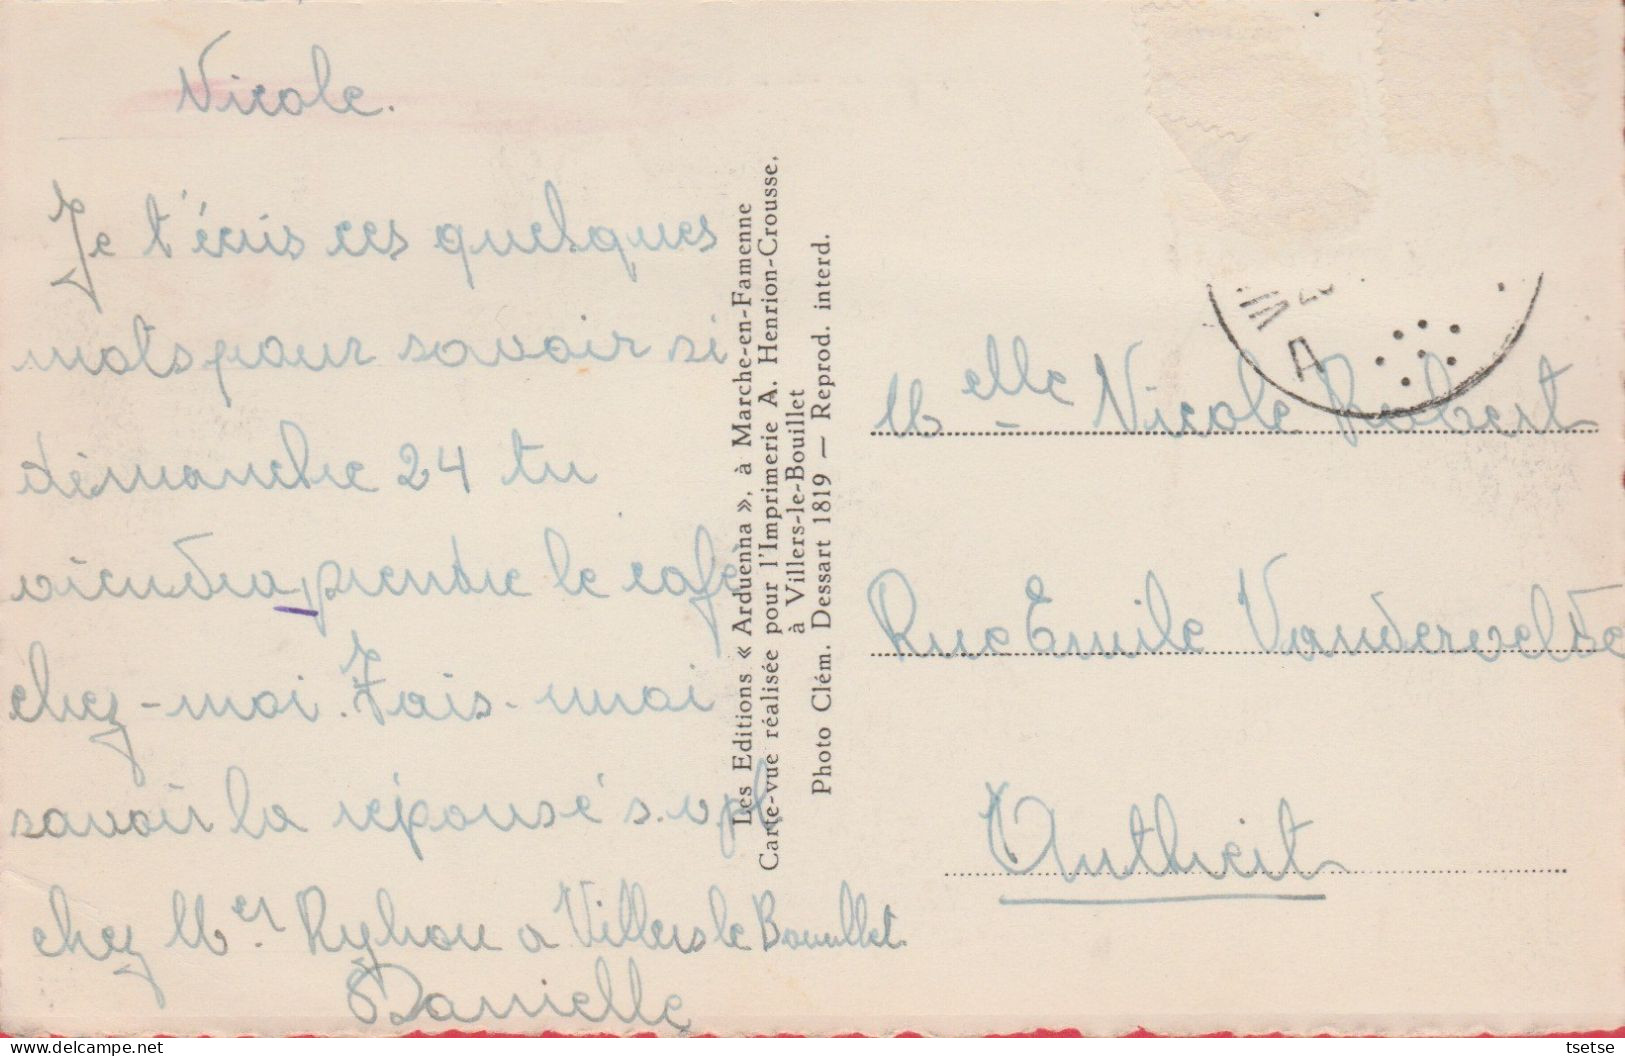 Nicole.
Je t'écris ces quelques
mots pour savoir si
démanche 24 tu
viendra prendre le café
chez-moi. Fais-moi
savoir la réponsé s.vpl
chez Mr Ryhou a Villers le Bouillet.
Danielle
Les Editions « Arduenna », à Marche-en-Famenne
Carte-vue réalisée pour l'Imprimerie A. Henrion-Crousse,
à Villers-le-Bouillet
Photo Clém. Dessart 1819 — Reprod. interd.
A
Melle Nicole Robert
Rue Emile Vandervelde
Antheit
delcampe.net
tsetse